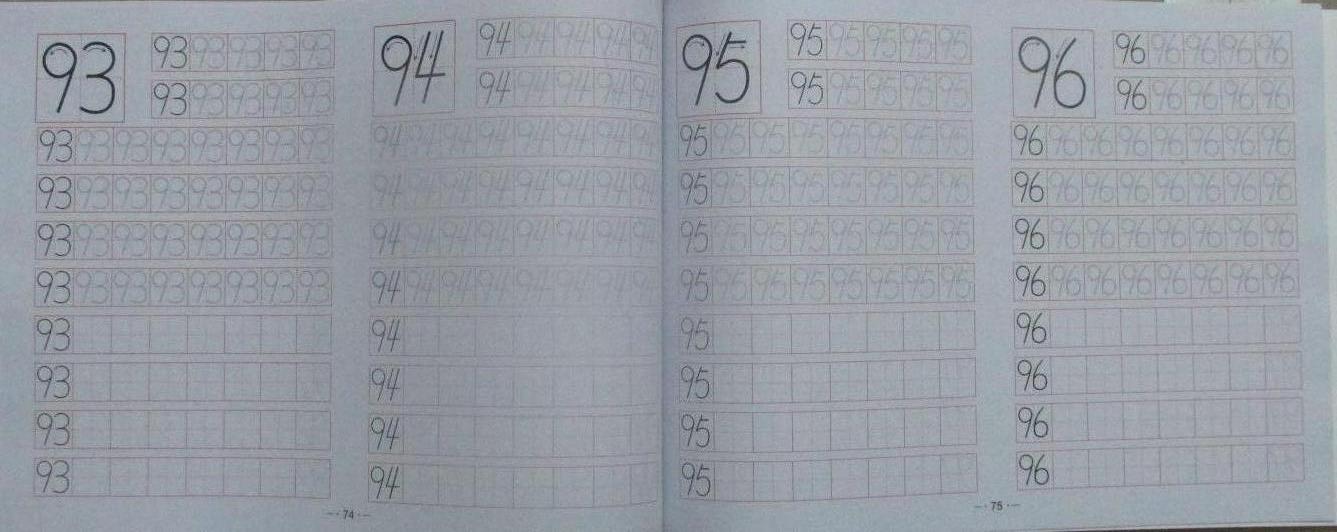 93
93 93 93 93 93
93 93 93 93 93
93 93 93 93 93 93 93 93
93 93 93 93 93 93 93 93
93 93 93 93 93 93 93 93
93 93 93 93 93 93 93 93
93
93
93
93
94
94 94 94 94 94
94 94 94 94 94
94 94 94 94 94 94 94 94
94 94 94 94 94 94 94 94
94 94 94 94 94 94 94 94
94 94 94 94 94 94 94 94
94
94
94
94
— · 74 · —
95
95 95 95 95 95
95 95 95 95 95
95 95 95 95 95 95 95 95
95 95 95 95 95 95 95 95
95 95 95 95 95 95 95 95
95 95 95 95 95 95 95 95
95
95
95
95
96
96 96 96 96 96
96 96 96 96 96
96 96 96 96 96 96 96 96
96 96 96 96 96 96 96 96
96 96 96 96 96 96 96 96
96 96 96 96 96 96 96 96
96
96
96
96
— · 75 · —